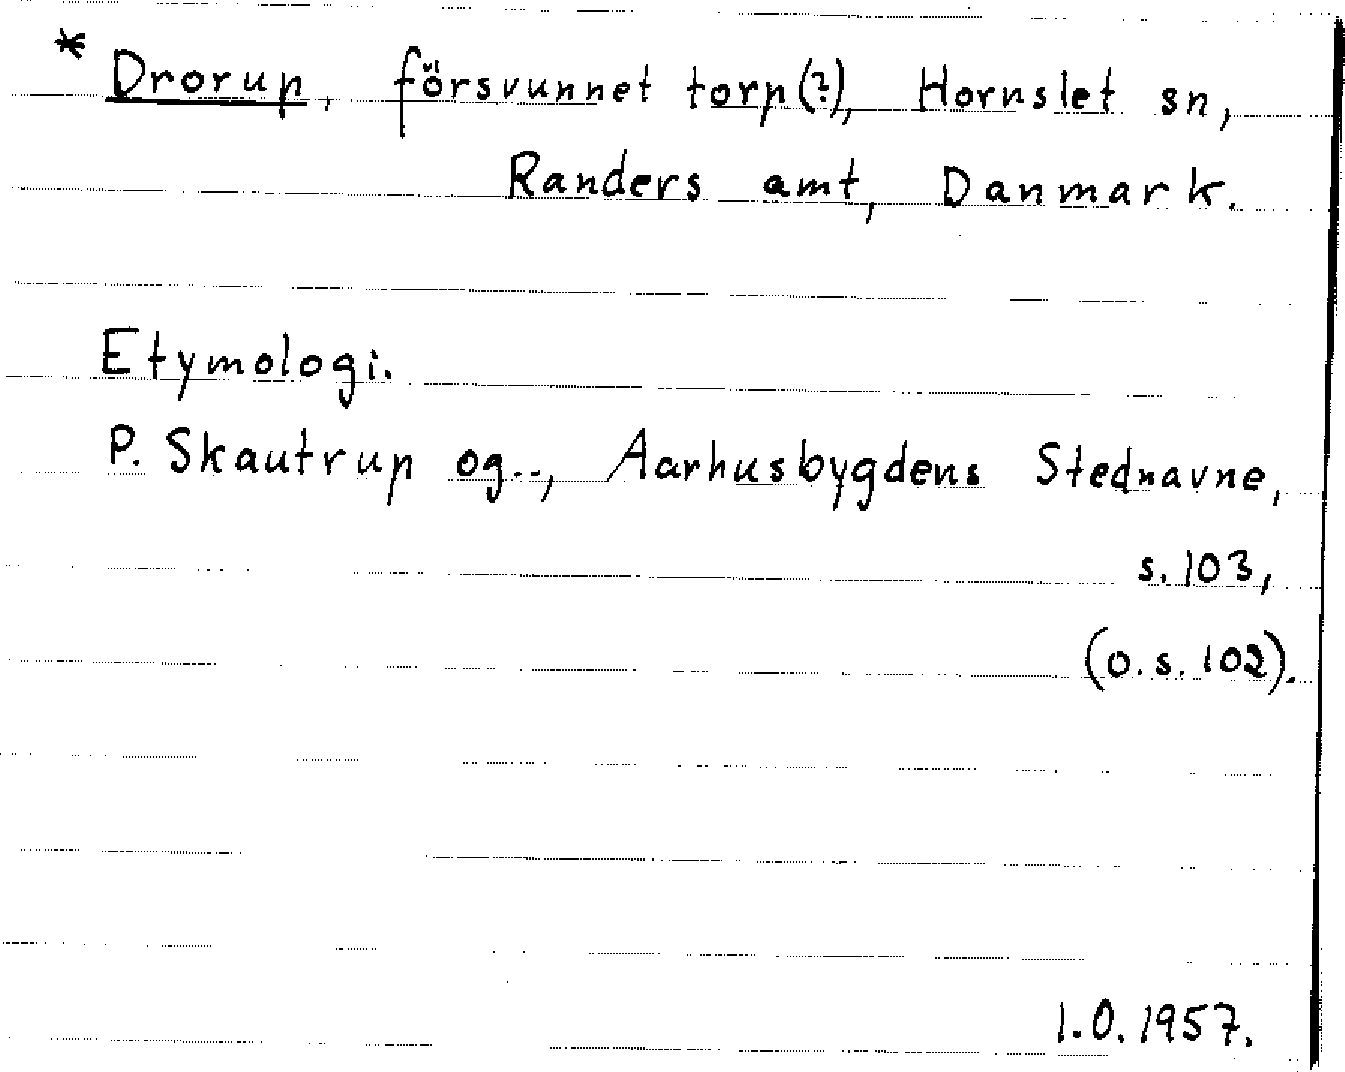 * Drorup, försvunnet torp(?), Hornslet sn,
Randers amt, Danmark.
Etymologi.
P. Skautrup og.., Aarhusbygdens Stednavne,
s. 103,
(o. s. 102).
I.O. 1957.